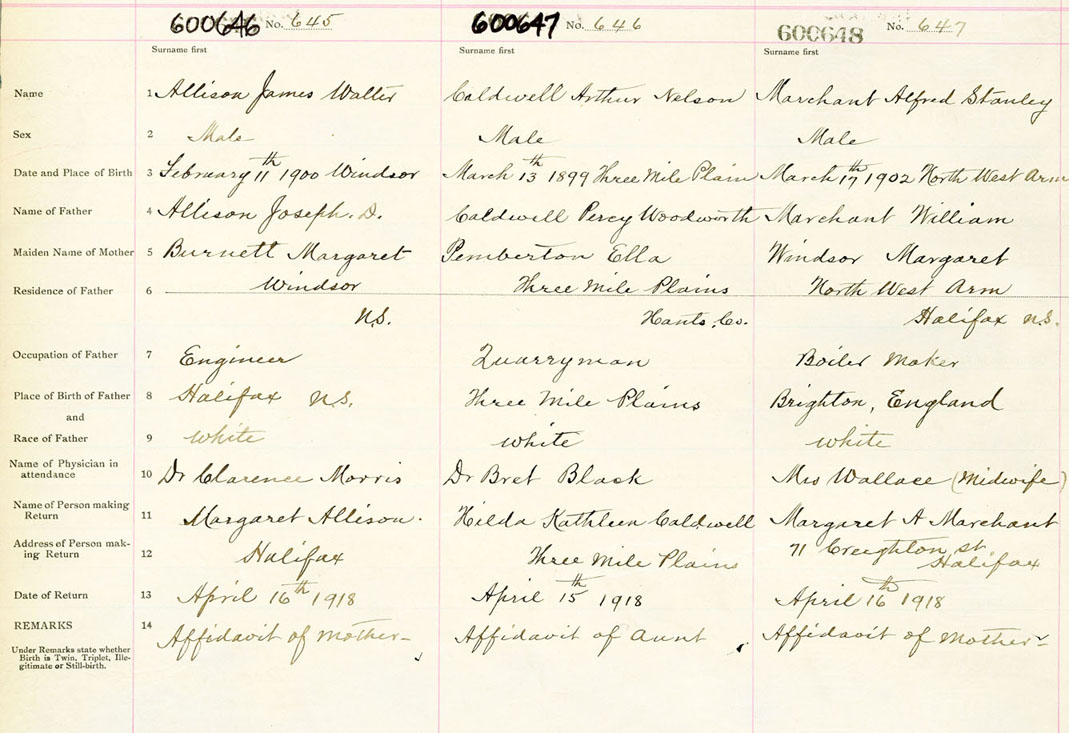 600646 No. 645 600647 No. 646 600648 No. 647
Surname first Surname first Surname first
Name 1 Allison James Walter Caldwell Arthur Nelson Marchant Alfred Stanley
Sex 2 Male Male Male
Date and Place of Birth 3 February 11th 1900 Windsor March 13th 1899 Three Mile Plain March 17th 1902 North West Arm
Name of Father 4 Allison Joseph. D. Caldwell Percy Woodworth Marchant William
Maiden Name of Mother 5 Burnett Margaret Pemberton Ella Windsor Margaret
Residence of Father 6 Windsor Three Mile Plains North West Arm
N.S. Hants. Co. Halifax N.S.
Occupation of Father 7 Engineer Quarryman Boiler Maker
Place of Birth of Father 8 Halifax N.S. Three Mile Plains Brighton, England
and
Race of Father 9 White White White
Name of Physician in
attendance 10 Dr Clarence Morris Dr Bret Black Mrs Wallace (Midwife)
Name of Person making
Return 11 Margaret Allison. Hilda Kathleen Caldwell Margaret A Marchant
Address of Person mak-
ing Return 12 Halifax Three Mile Plains 71 Creighton st.
Halifax
Date of Return 13 April 16th 1918 April 15th 1918 April 16th 1918
REMARKS 14 Affidavit of Mother- Affidavit of Aunt Affidavit of Mother-
Under Remarks state whether
Birth is Twin, Triplet, Ille-
gitimate or Still-birth.